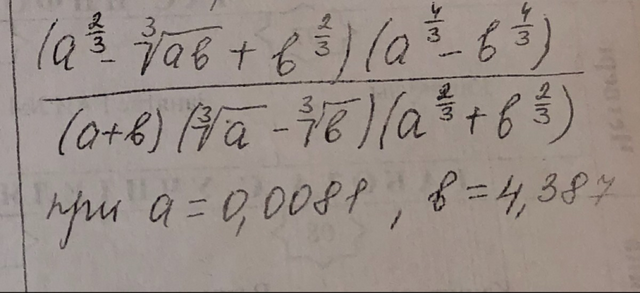 (a^{2/3} - ∛(ab) + b^{2/3})(a^{4/3} - b^{4/3})
(a+b)(∛a - ∛b)(a^{2/3} + b^{2/3})
при a = 0,0081, b = 4,387